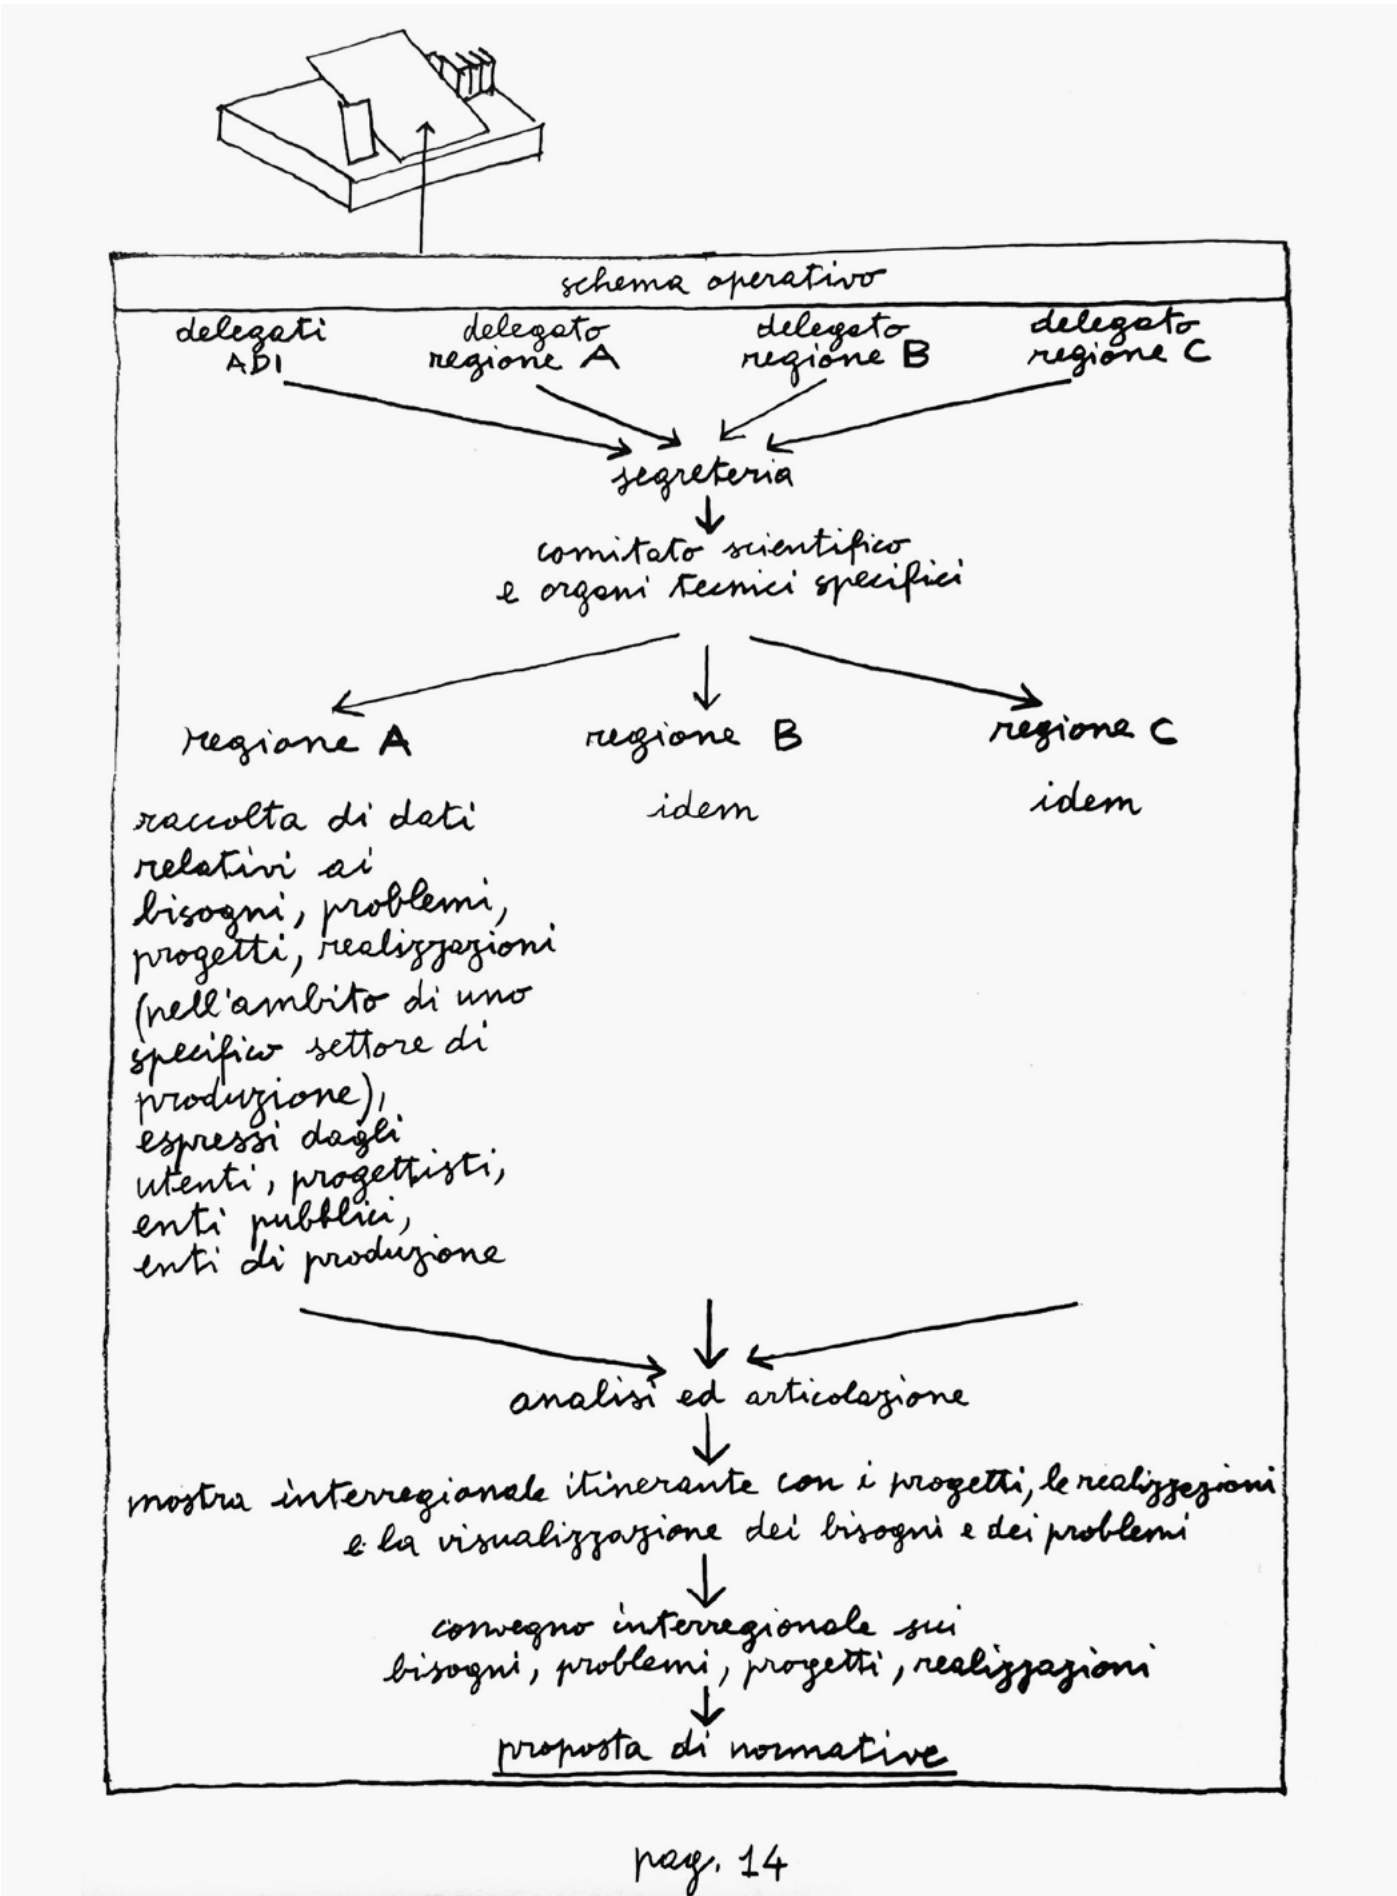 schema operativo
delegati
ADI
delegato
regione A
delegato
regione B
delegato
regione C
segreteria
comitato scientifico
e organi tecnici specifici
regione A
regione B
regione C
raccolta di dati
relativi ai
bisogni, problemi,
progetti, realizzazioni
(nell'ambito di uno
specifico settore di
produzione),
espressi dagli
utenti, progettisti,
enti pubblici,
enti di produzione
idem
idem
analisi ed articolazione
mostra interregionale itinerante con i progetti, le realizzazioni
e la visualizzazione dei bisogni e dei problemi
convegno interregionale sui
bisogni, problemi, progetti, realizzazioni
proposta di normative
pag. 14